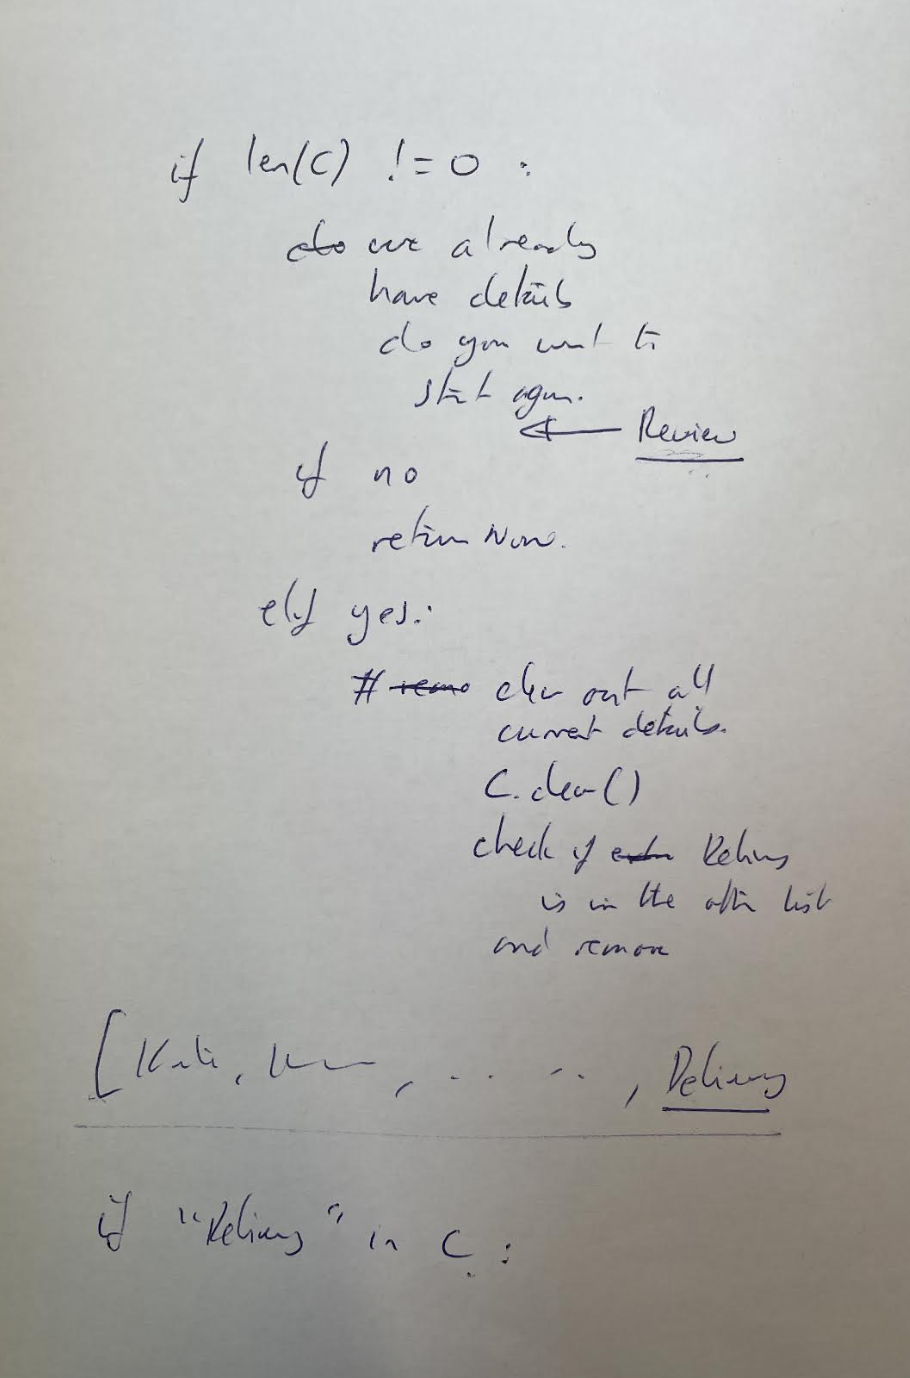 if len(C) != 0 :
do we already
have details
do you want to
start again.
← Review
if no
return None.
elif yes:
# remo clear out all
current details.
C.clear()
check if Delivery
is in the other list
and remove
[Kate, , .. .. , Delivery
if "Delivery" in C :